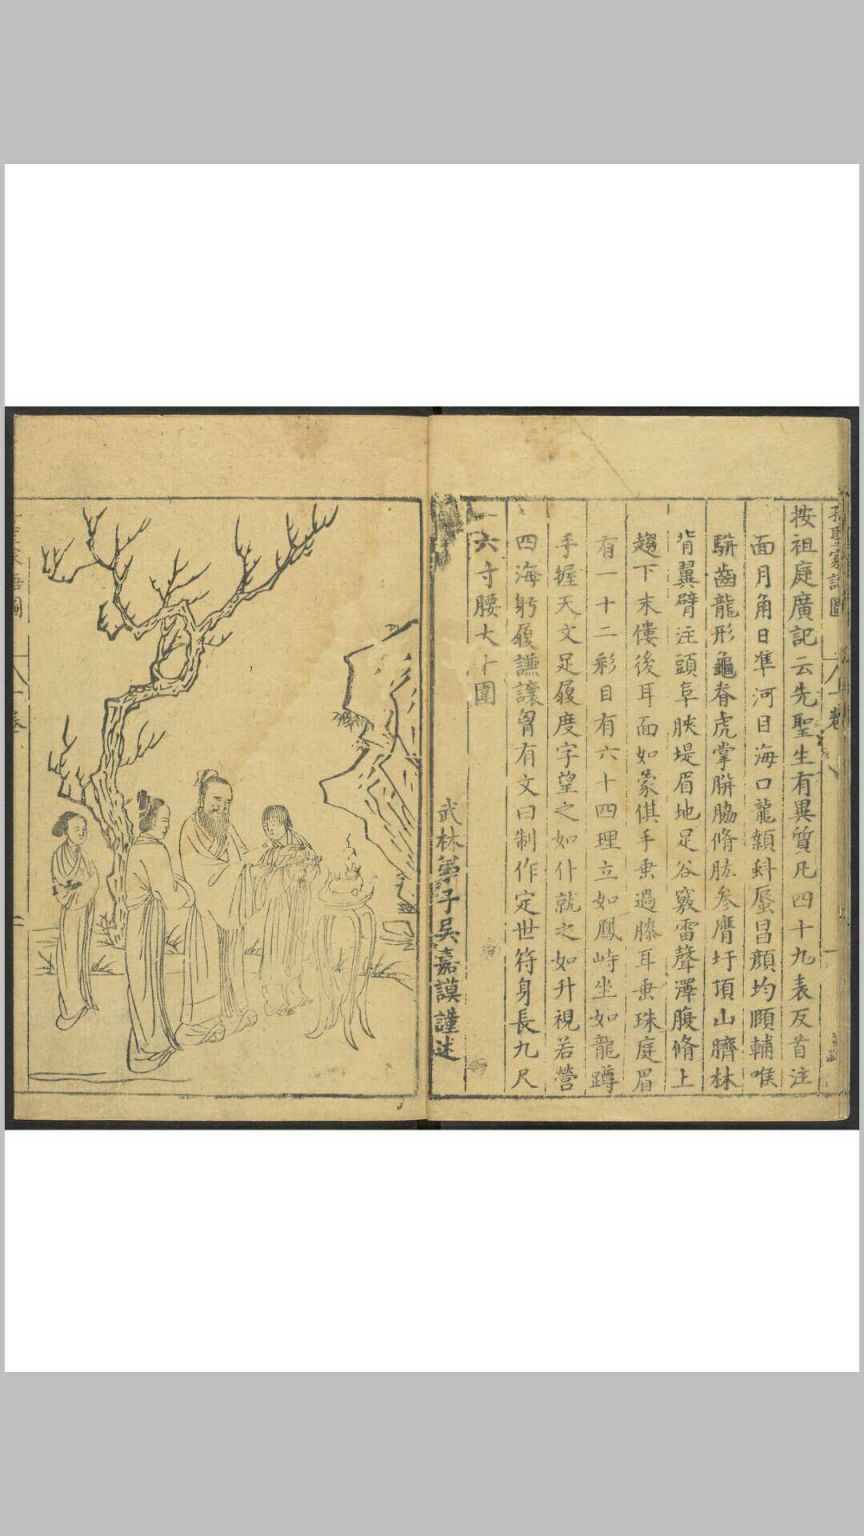 孔聖家語圖 卷一
按祖庭廣記云先聖生有異質凡四十九表反首注
面月角日準河目海口龍顙斗唇昌顏均頤輔喉
駢齒龍形龜脊虎掌駢脇脩肱參膺圩頂山臍林
背翼臂注頭阜脥堤眉地足谷竅雷聲澤腹脩上
趨下末僂後耳面如蒙倛手垂過膝耳垂珠庭眉
有一十二彩目有六十四理立如鳳峙坐如龍蹲
手握天文足履度字望之如仆就之如升視若營
四海躬履謙讓胷有文曰制作定世符身長九尺
六寸腰大十圍
武林弟子吳嘉謨謹述
聖家語圖 卷